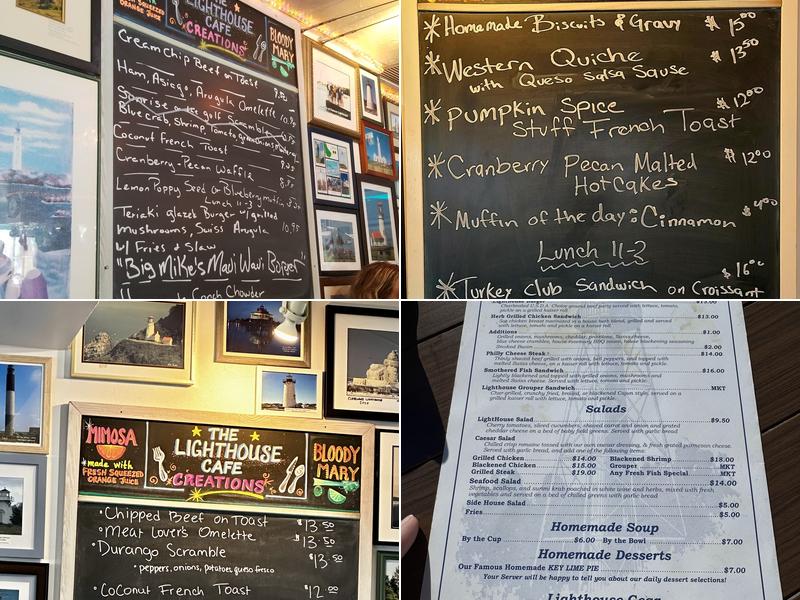 SQUEEZED
ORANGE JUICE
THE
LIGHTHOUSE
CAFE
CREATIONS
BLOODY
MARY
Cream Chip Beef on Toast
Ham, Asiago, Arugula Omelette 10.95
Sunrise on the gulf Scramble
Blue crab, Shrimp, Tomato
Coconut French Toast
Cranberry-Pecan Waffle
Lemon Poppy Seed & Blueberry muffin
Lunch 11-3
Teriaki glazed Burger w/ grilled
mushrooms, Swiss Arugula 10.95
w/ Fries & Slaw
"Big Mike's Maui Wavi Burger"
Conch Chowder
*Homemade Biscuits & Gravy $15.00
*Western Quiche $13.50
with Queso Salsa Sause
*Pumpkin Spice $12.00
Stuff French Toast
*Cranberry Pecan Malted $12.00
HotCakes
*Muffin of the day: Cinnamon $4.00
Lunch 11-3
*Turkey Club Sandwich on Croissant $16.00
MIMOSA
made with
FRESH SQUEEZED
ORANGE JUICE
THE
LIGHTHOUSE
CAFE
CREATIONS
BLOODY
MARY
•Chipped Beef on Toast $13.50
•Meat Lover's Omelette $13.50
•Durango Scramble $13.50
•peppers, onions, potatoes, queso fresco
•Coconut French Toast $12.00
Lighthouse Burger $13.00
Charbroiled U.S.D.A. Choice ground beef patty served with lettuce, tomato,
pickle on a grilled kaiser roll
Herb Grilled Chicken Sandwich $13.00
8oz chicken breast marinated in a house herb blend, grilled and
served with lettuce, tomato and pickle on a kaiser roll.
Additions $1.00
Grilled onions, mushrooms, cheddar, provolone, Swiss cheese,
blue cheese crumbles, house rosemary BBQ sauce, house blackening seasoning
Smoked Bacon $2.00
Philly Cheese Steak $14.00
Thinly shaved beef grilled with onions, bell peppers, and topped with
melted Swiss cheese, on a kaiser roll with lettuce, tomato and pickle.
Smothered Fish Sandwich $16.00
Lightly blackened and topped with grilled onions, mushrooms and
melted Swiss cheese. Served with lettuce, tomato and pickle.
Lighthouse Grouper Sandwich MKT
Char-grilled, crunchy fried, broiled, or blackened Cajun style, served on a
kaiser roll with lettuce, tomato and pickle.
Salads
LightHouse Salad $9.50
Cherry tomatoes, sliced cucumbers, shaved carrot and onion and grated
cheddar cheese on a bed of leafy field greens. Served with garlic bread.
Caesar Salad
Chilled crisp romaine tossed with our own caesar dressing, & fresh grated parmesan cheese.
Served with garlic bread, and add one of the following items:
Grilled Chicken $14.00 Blackened Shrimp $18.00
Blackened Chicken $15.00 Grouper MKT
Grilled Steak $19.00 Any Fresh Fish Special MKT
Seafood Salad $14.00
Shrimp, scallops, and surimi krab poached in white wine and herbs, mixed with fresh
vegetables and served on a bed of chilled greens with garlic bread
Side House Salad $5.00
Fries $5.00
Homemade Soup
By the Cup $6.00 By the Bowl $7.00
Homemade Desserts
Our Famous Homemade KEY LIME PIE $7.00
Your Server will be happy to tell you about our daily dessert selections!
Lighthouse Gear